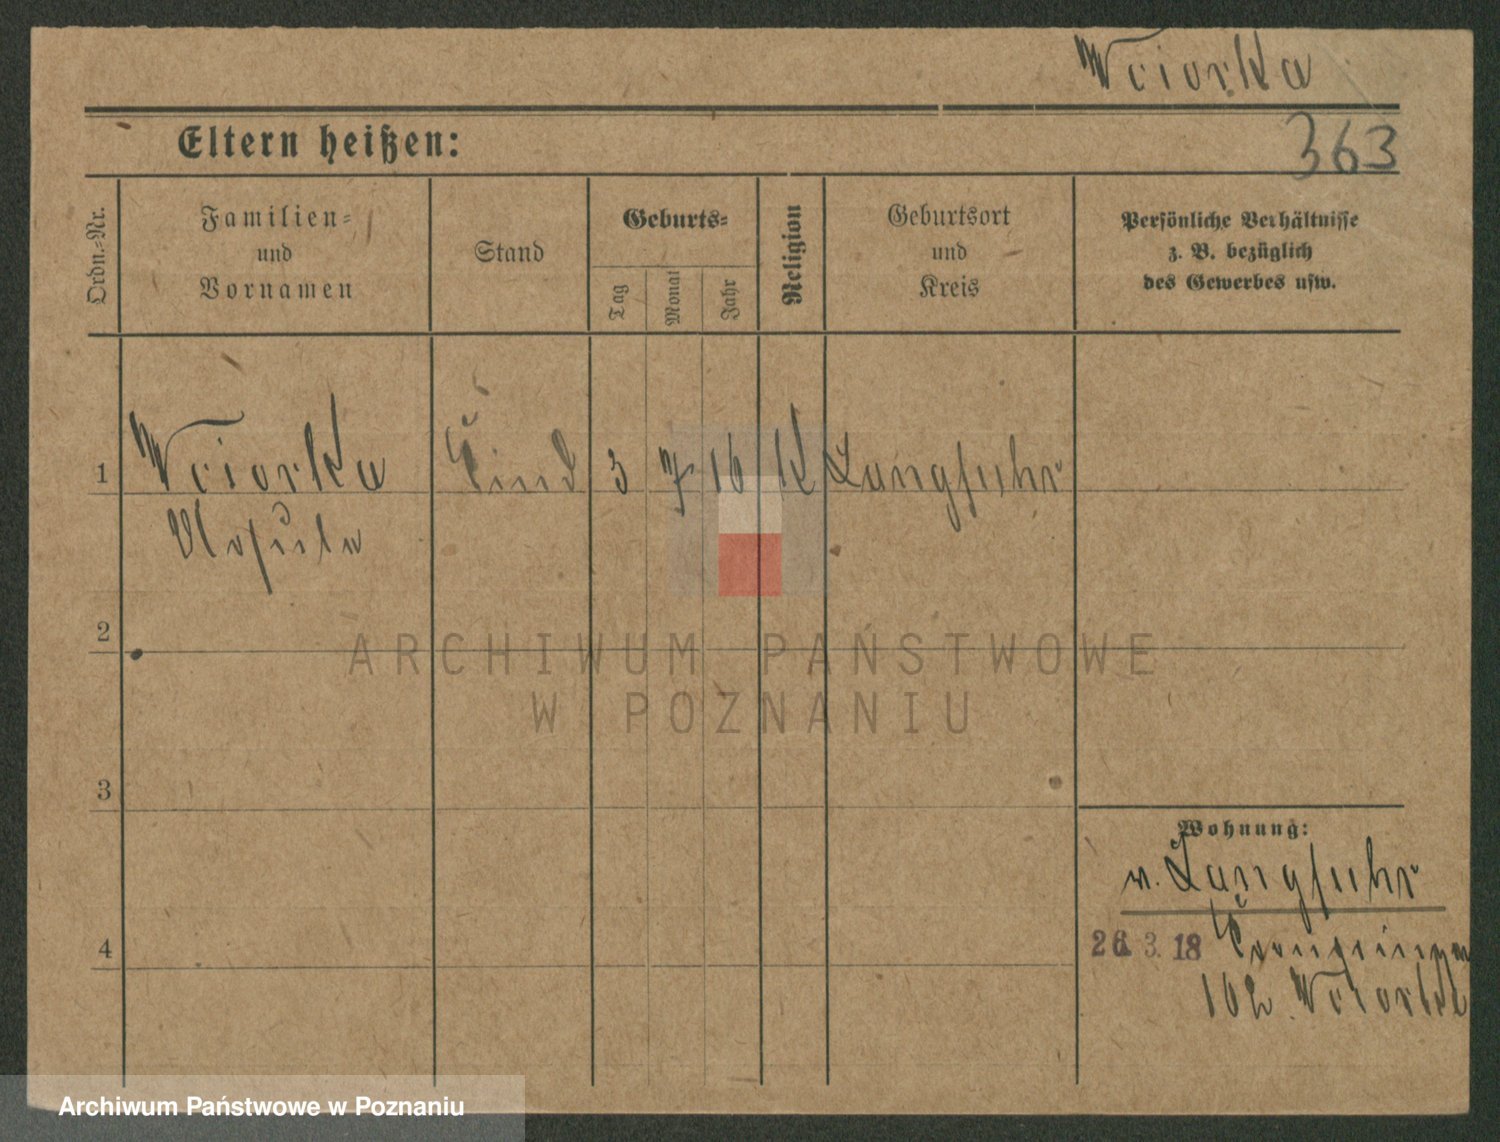 Wciorka
Eltern heißen:
363
Ordn.-Nr.
Familien-
und
Vornamen
Stand
Geburts-
Tag
Monat
Jahr
Religion
Geburtsort
und
Kreis
Persönliche Verhältnisse
z. B. bezüglich
des Gewerbes usw.
1 Wciorka Kind 3 7 16 K Langfuhr
2
3
4
Wohnung:
v. Langfuhr
26. 3. 18
102 Wciorka
ARCHIWUM PAŃSTWOWE
W POZNANIU
Archiwum Państwowe w Poznaniu